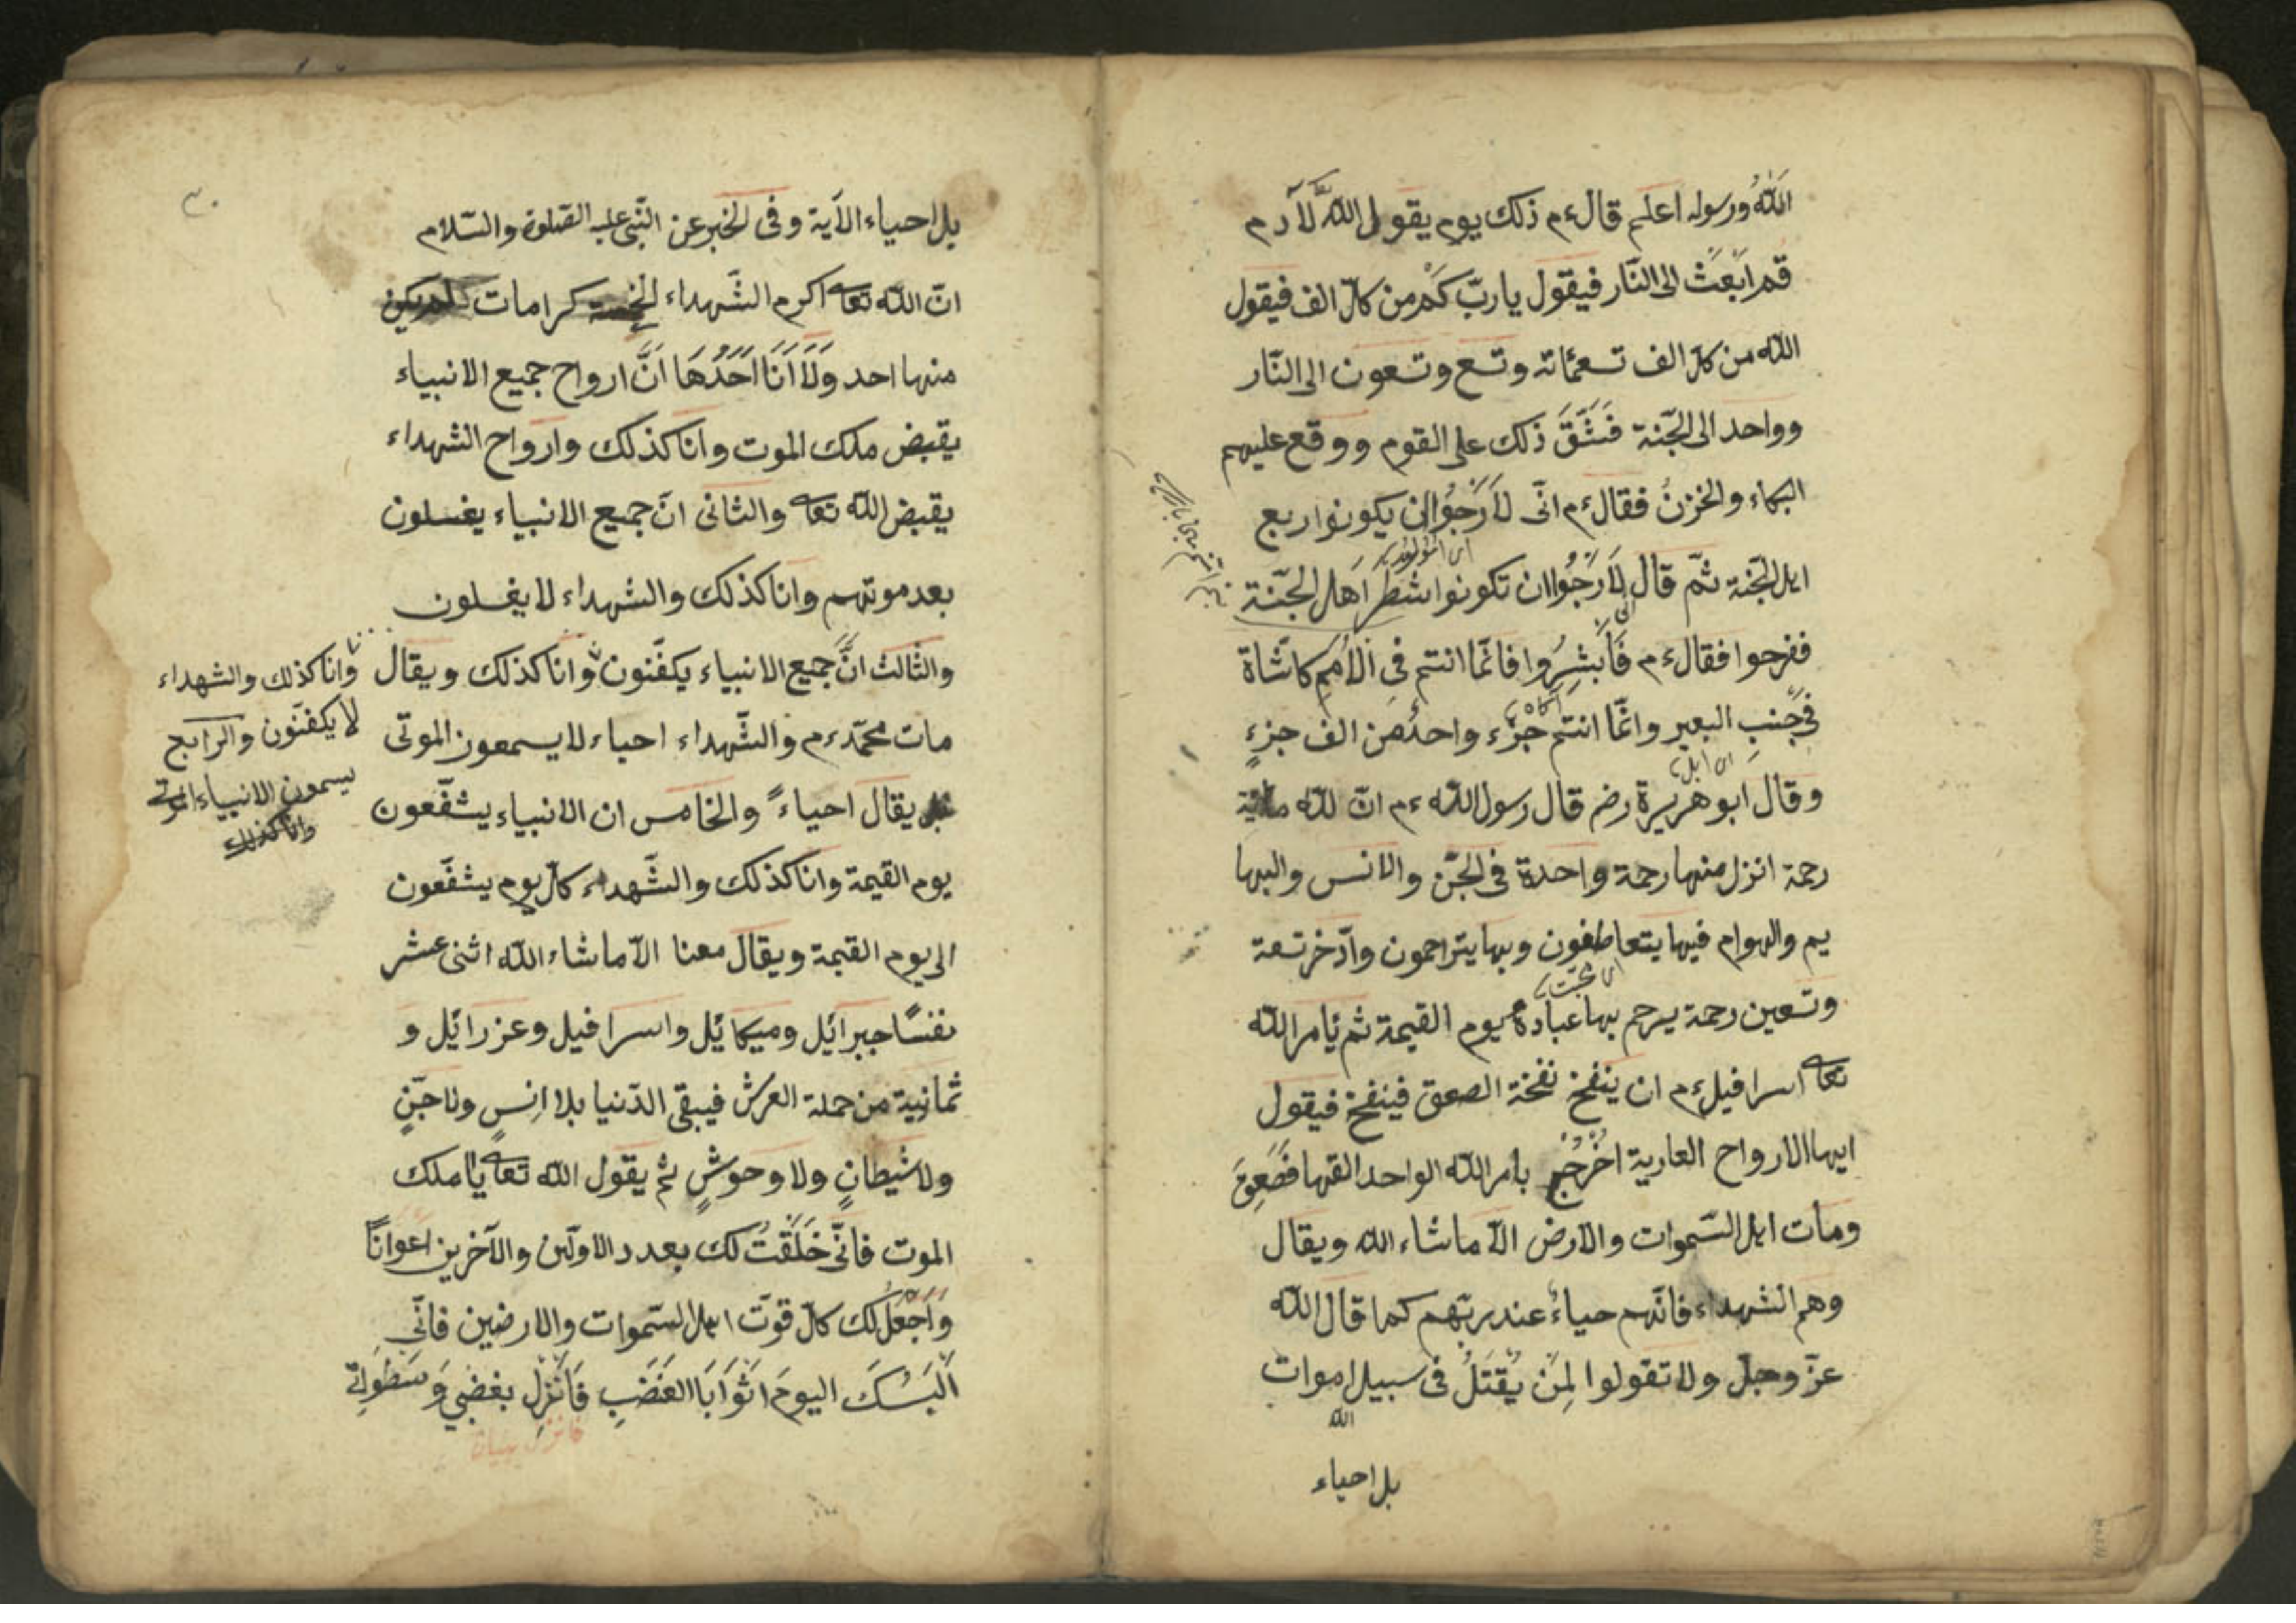 الله ورسوله اعلم قال ءم ذلك يوم يقول الله لآدم
قم ابعث الى النار فيقول يا ربّ كم من كلّ الف فيقول
الله من كلّ الف تسعمائة وتسع وتسعون الى النّار
وواحد الى الجنّة فشقّ ذلك على القوم ووقع عليهم
البكاء والحزن فقال ءم انّى لأرجوا ان يكونوا ربع
اهل الجنّة ثمّ قال لأرجوا ان تكونوا شطر اهل الجنّة
ففرحوا فقال ءم فأبشروا فانّما انتم فى الأمم كاشّاة
فى جنب البعير وانّما انتم جزء واحد من الف جزءٍ
وقال ابو هريرة رضم قال رسول الله ءم انّ لله مائة
رحمة انزل منها رحمة واحدة فى الجنّ والانس والبها
يم والهوام فيها يتعاطفون وبها يتراحمون وادّخر تسعة
وتسعين رحمة يرحم بها عباده يوم القيمة ثم يأمر الله
تعا اسرافيل ءم ان ينفخ نفخة الصعق فينفخ فيقول
ايها الارواح العارية اخرج بامر الله الواحد القهار فصعق
ومات اهل السّموات والارض الّا ما شاء الله ويقال
وهم الشهداء فانّهم احياء عند ربّهم كما قال الله
عزّ وجلّ ولا تقولوا لمن يُقتَلُ فى سبيل اموات
الله
بل احياء
٣٠
بل احياء الآية وفى الخبر عن النّبى عليه الصّلوة والسّلام
انّ الله تعا اكرم الشّهداء الخمسة كرامات لم يكن
منها احد ولا أنا احدها انّ ارواح جميع الانبياء
يقبض ملك الموت وانا كذلك وارواح الشهداء
يقبض الله تعا والثانى انّ جميع الانبياء يغسلون
بعد موتهم وانا كذلك والشهداء لا يغسلون
والثالث انّ جميع الانبياء يكفّنون وانا كذلك ويقال
مات محمّد ءم والشّهداء احياء لا يسمعون الموتى
بل يقال احياءً والخامس ان الانبياء يشفّعون
يوم القيمة وانا كذلك والشّهداء كلّ يوم يشفّعون
الى يوم القيمة ويقال معنا الّا ما شاء الله اثنى عشر
نفسًا جبرائيل وميكائيل واسرافيل وعزرائيل و
ثمانية من حملة العرش فيبقى الدّنيا بلا انسٍ ولا جنّ
ولا شيطانٍ ولا وحوشٍ ثم يقول الله تعا يا ملك
الموت فانّى خَلَقْتُ لك بعدد الاوّلين والآخرين اعوانًا
وأجعل لك كلّ قوّت اهل السّموات والارضين فانّى
ألبسك اليوم اثوابا الغضب فانزل بغضبي وسطوتى
فانزل
وانا كذلك والشهداء
لا يكفّنون والرابع
يسمون الانبياء اموتى
وانا كذلك